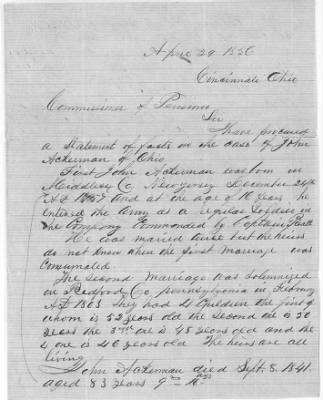 Apriel 29 1856
Cincinnatie Ohio
Commissioner of Pensions
Sir
I have procured
a Statement of facts in the case of John
Ackerman of Ohio
First John Ackerman was born in
Middlesex Co, New Jersey December 24th
AD 1757 and at the age of 18 years he
entered the Army as a regular Soldier in
the Company Commanded by Captain Piatt
He was married twice but the heirs
do not know when the first marriage was
Consumated
The Second Marriage was Solemnized
in Bedford Co pennsylvania in
AD 1803 they had 4 Children the first of
whom is 52 years old the second one is 50
years the 3rd one is 48 years old and the
4 one is 46 years old The heirs are all
living
John Ackerman died Sept. 8. 1841.
aged 83 years 9